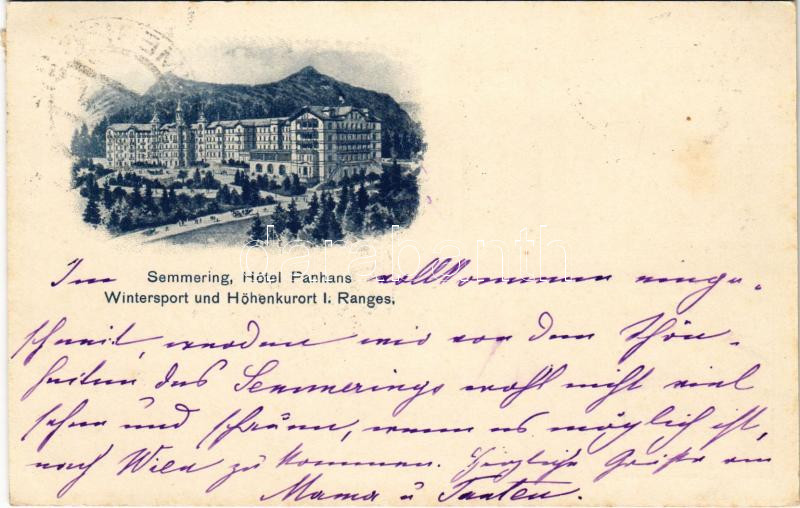 Semmering, Hôtel Panhans
Wintersport und Höhenkurort I. Ranges.
Im vollkommen einge-
schneit, werden wir von den Schön-
heiten des Semmerings wohl nicht viel
sehen und schauen, wenn es möglich ist,
nach Wien zu kommen. Herzliche Grüße an
Mama u Tanten.
darabanth